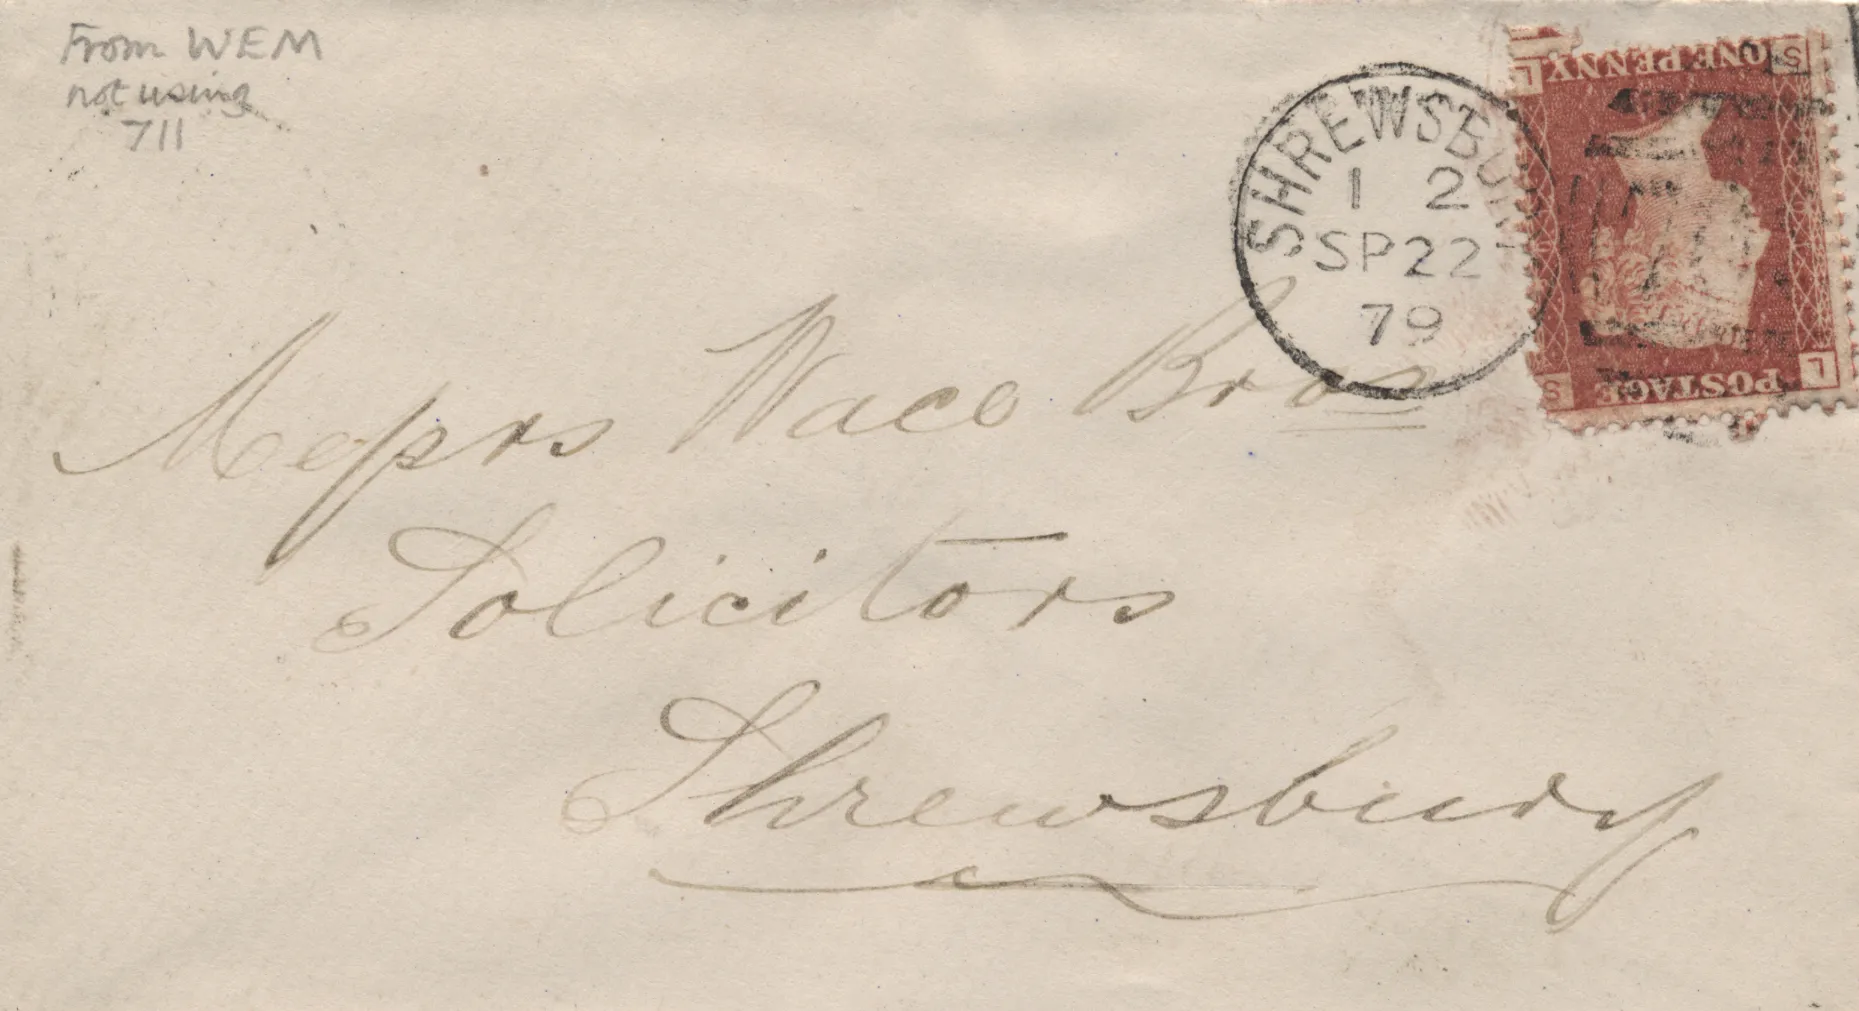 From WEM
not using
711
SHREWSBURY
1 2
SP 22
79
S
ONE PENNY
L
L
POSTAGE
S
Messrs Wace Bros
Solicitors
Shrewsbury